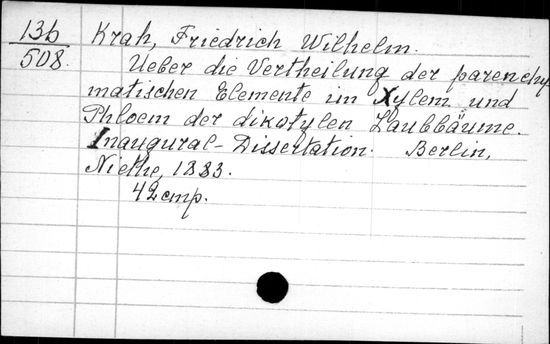 13b Krah, Friedrich Wilhelm.
508. Ueber die Vertheilung der parenchy
matischen Elemente im Xylem und
Phloem der dikotylen Laubbäume.
Inaugural-Dissertation. Berlin,
Niethe, 1883.
42 cmp.